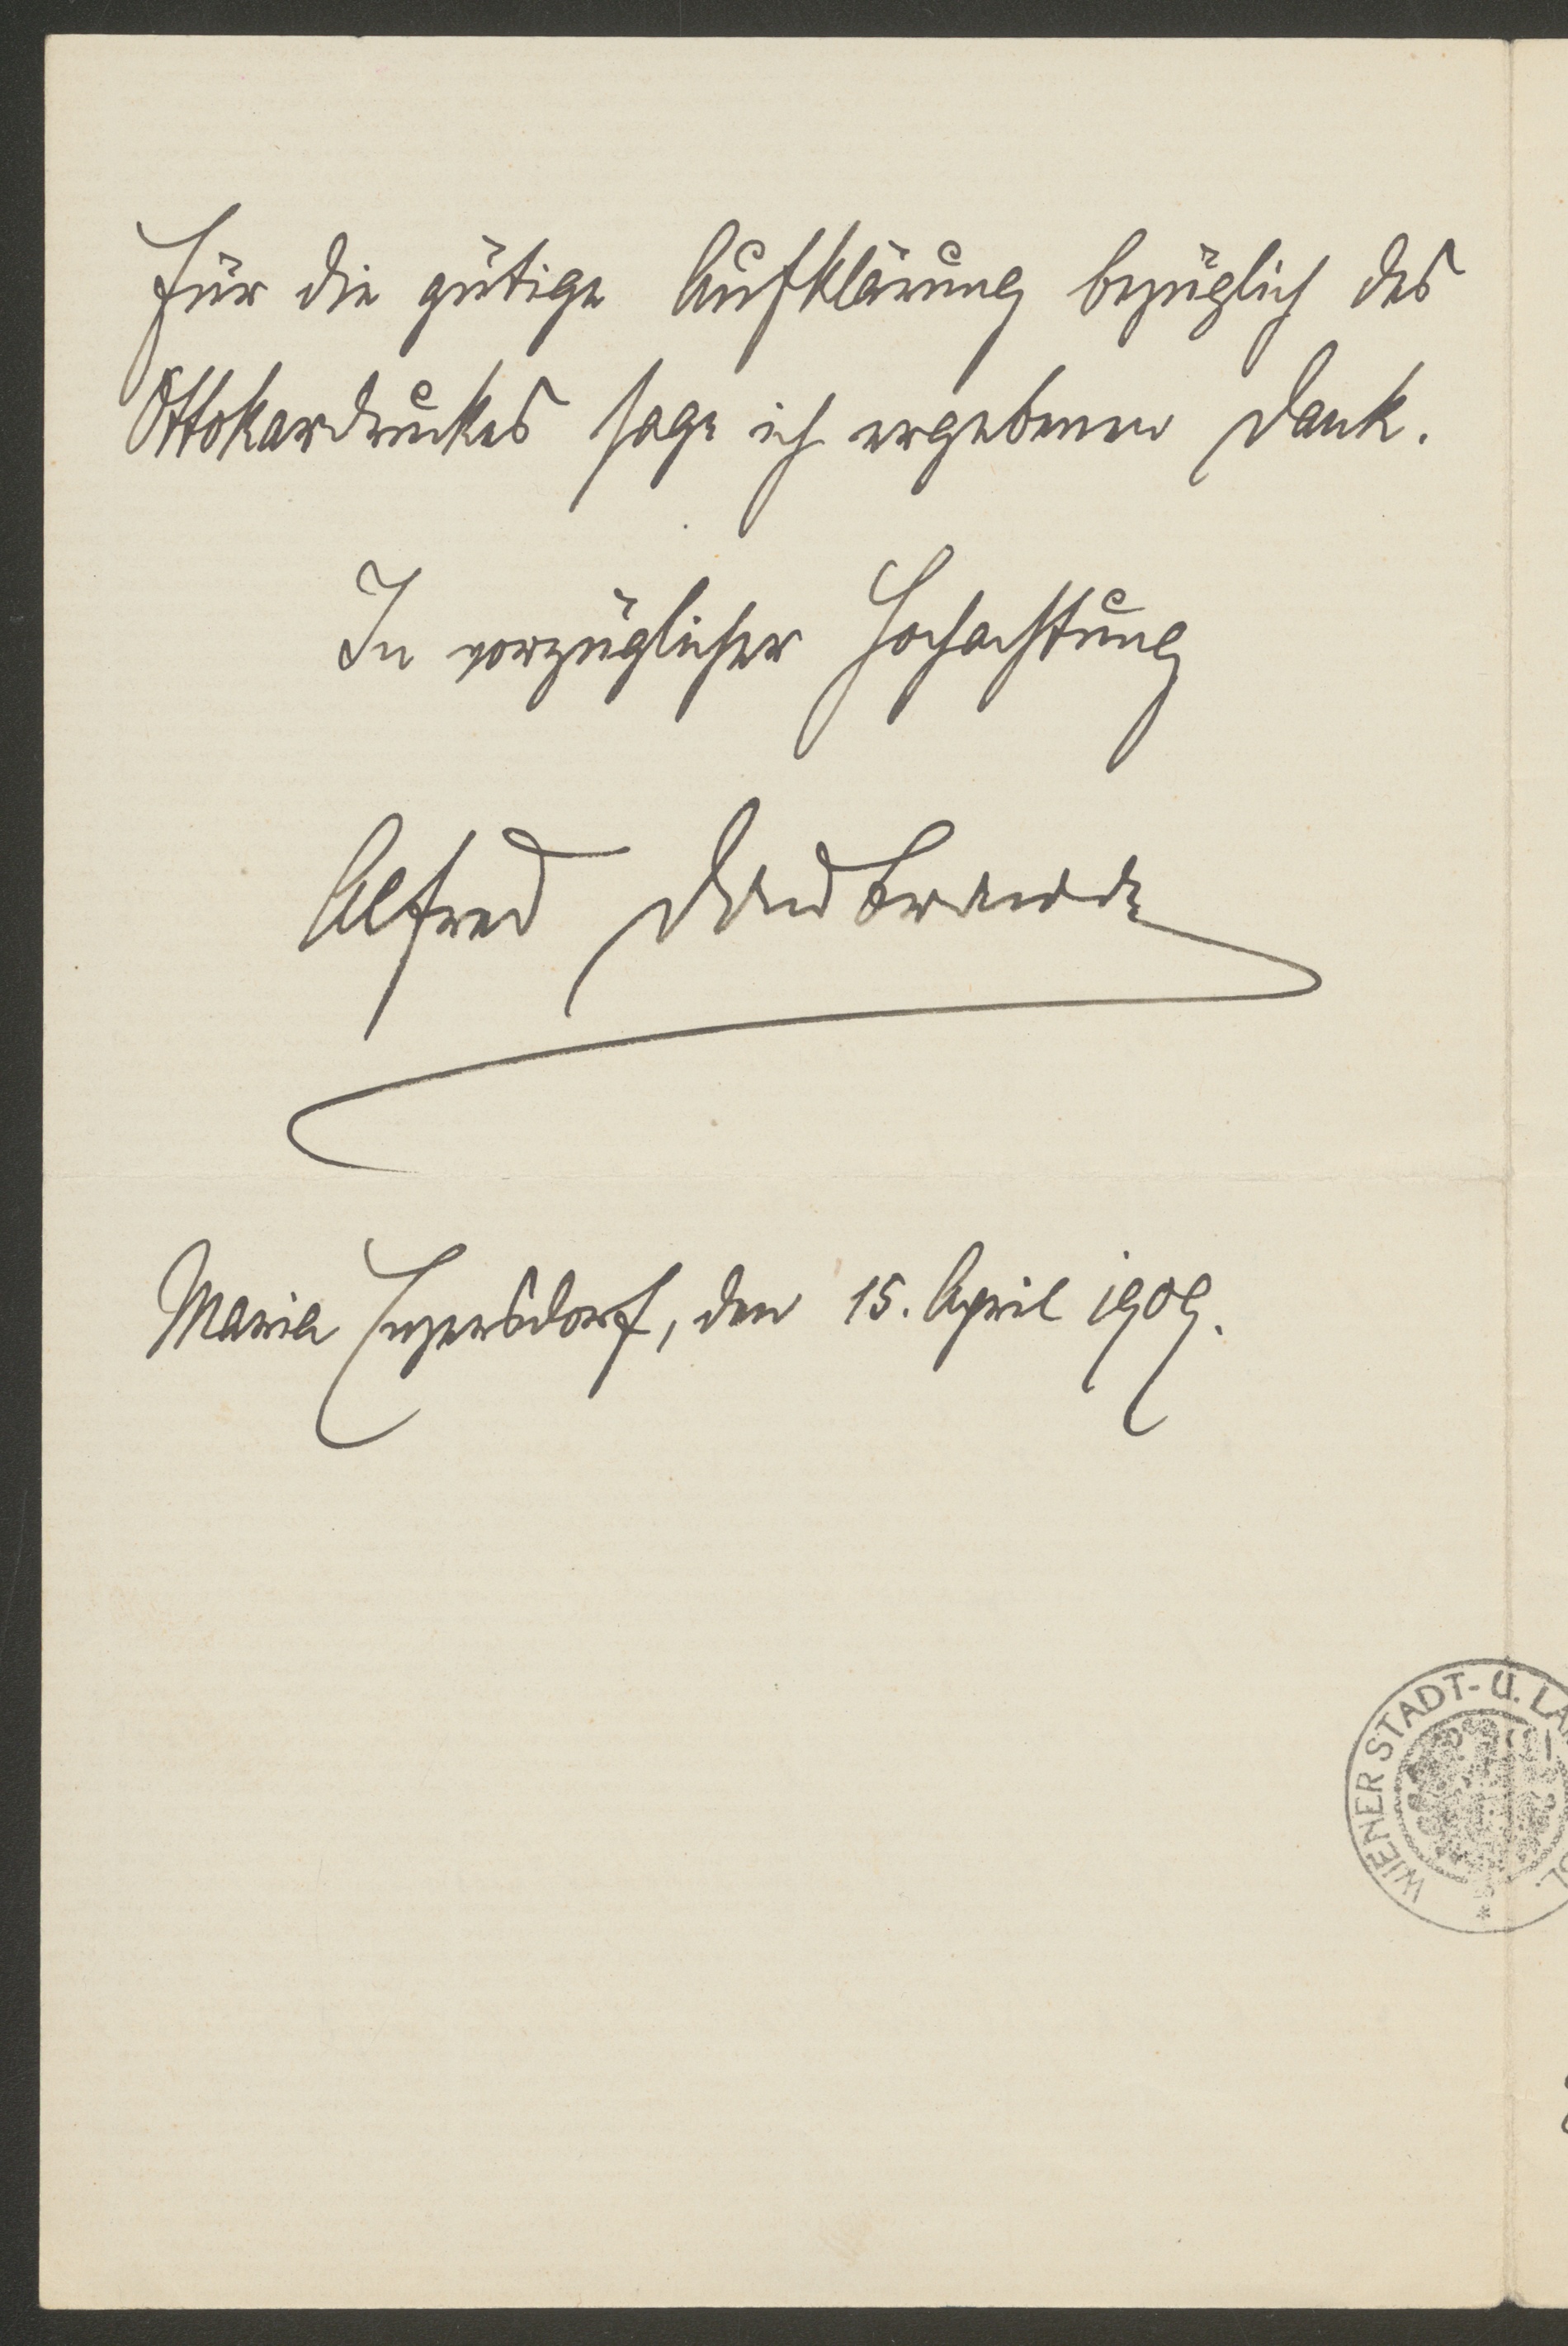 Für die gütige Aufklärung bezüglich des
Ottokardruckes sage ich ergebenen Dank.
In vorzüglicher Hochachtung
Alfred
Maria Enzersdorf, den 15. April 1909.
WIENER STADT- U. LA